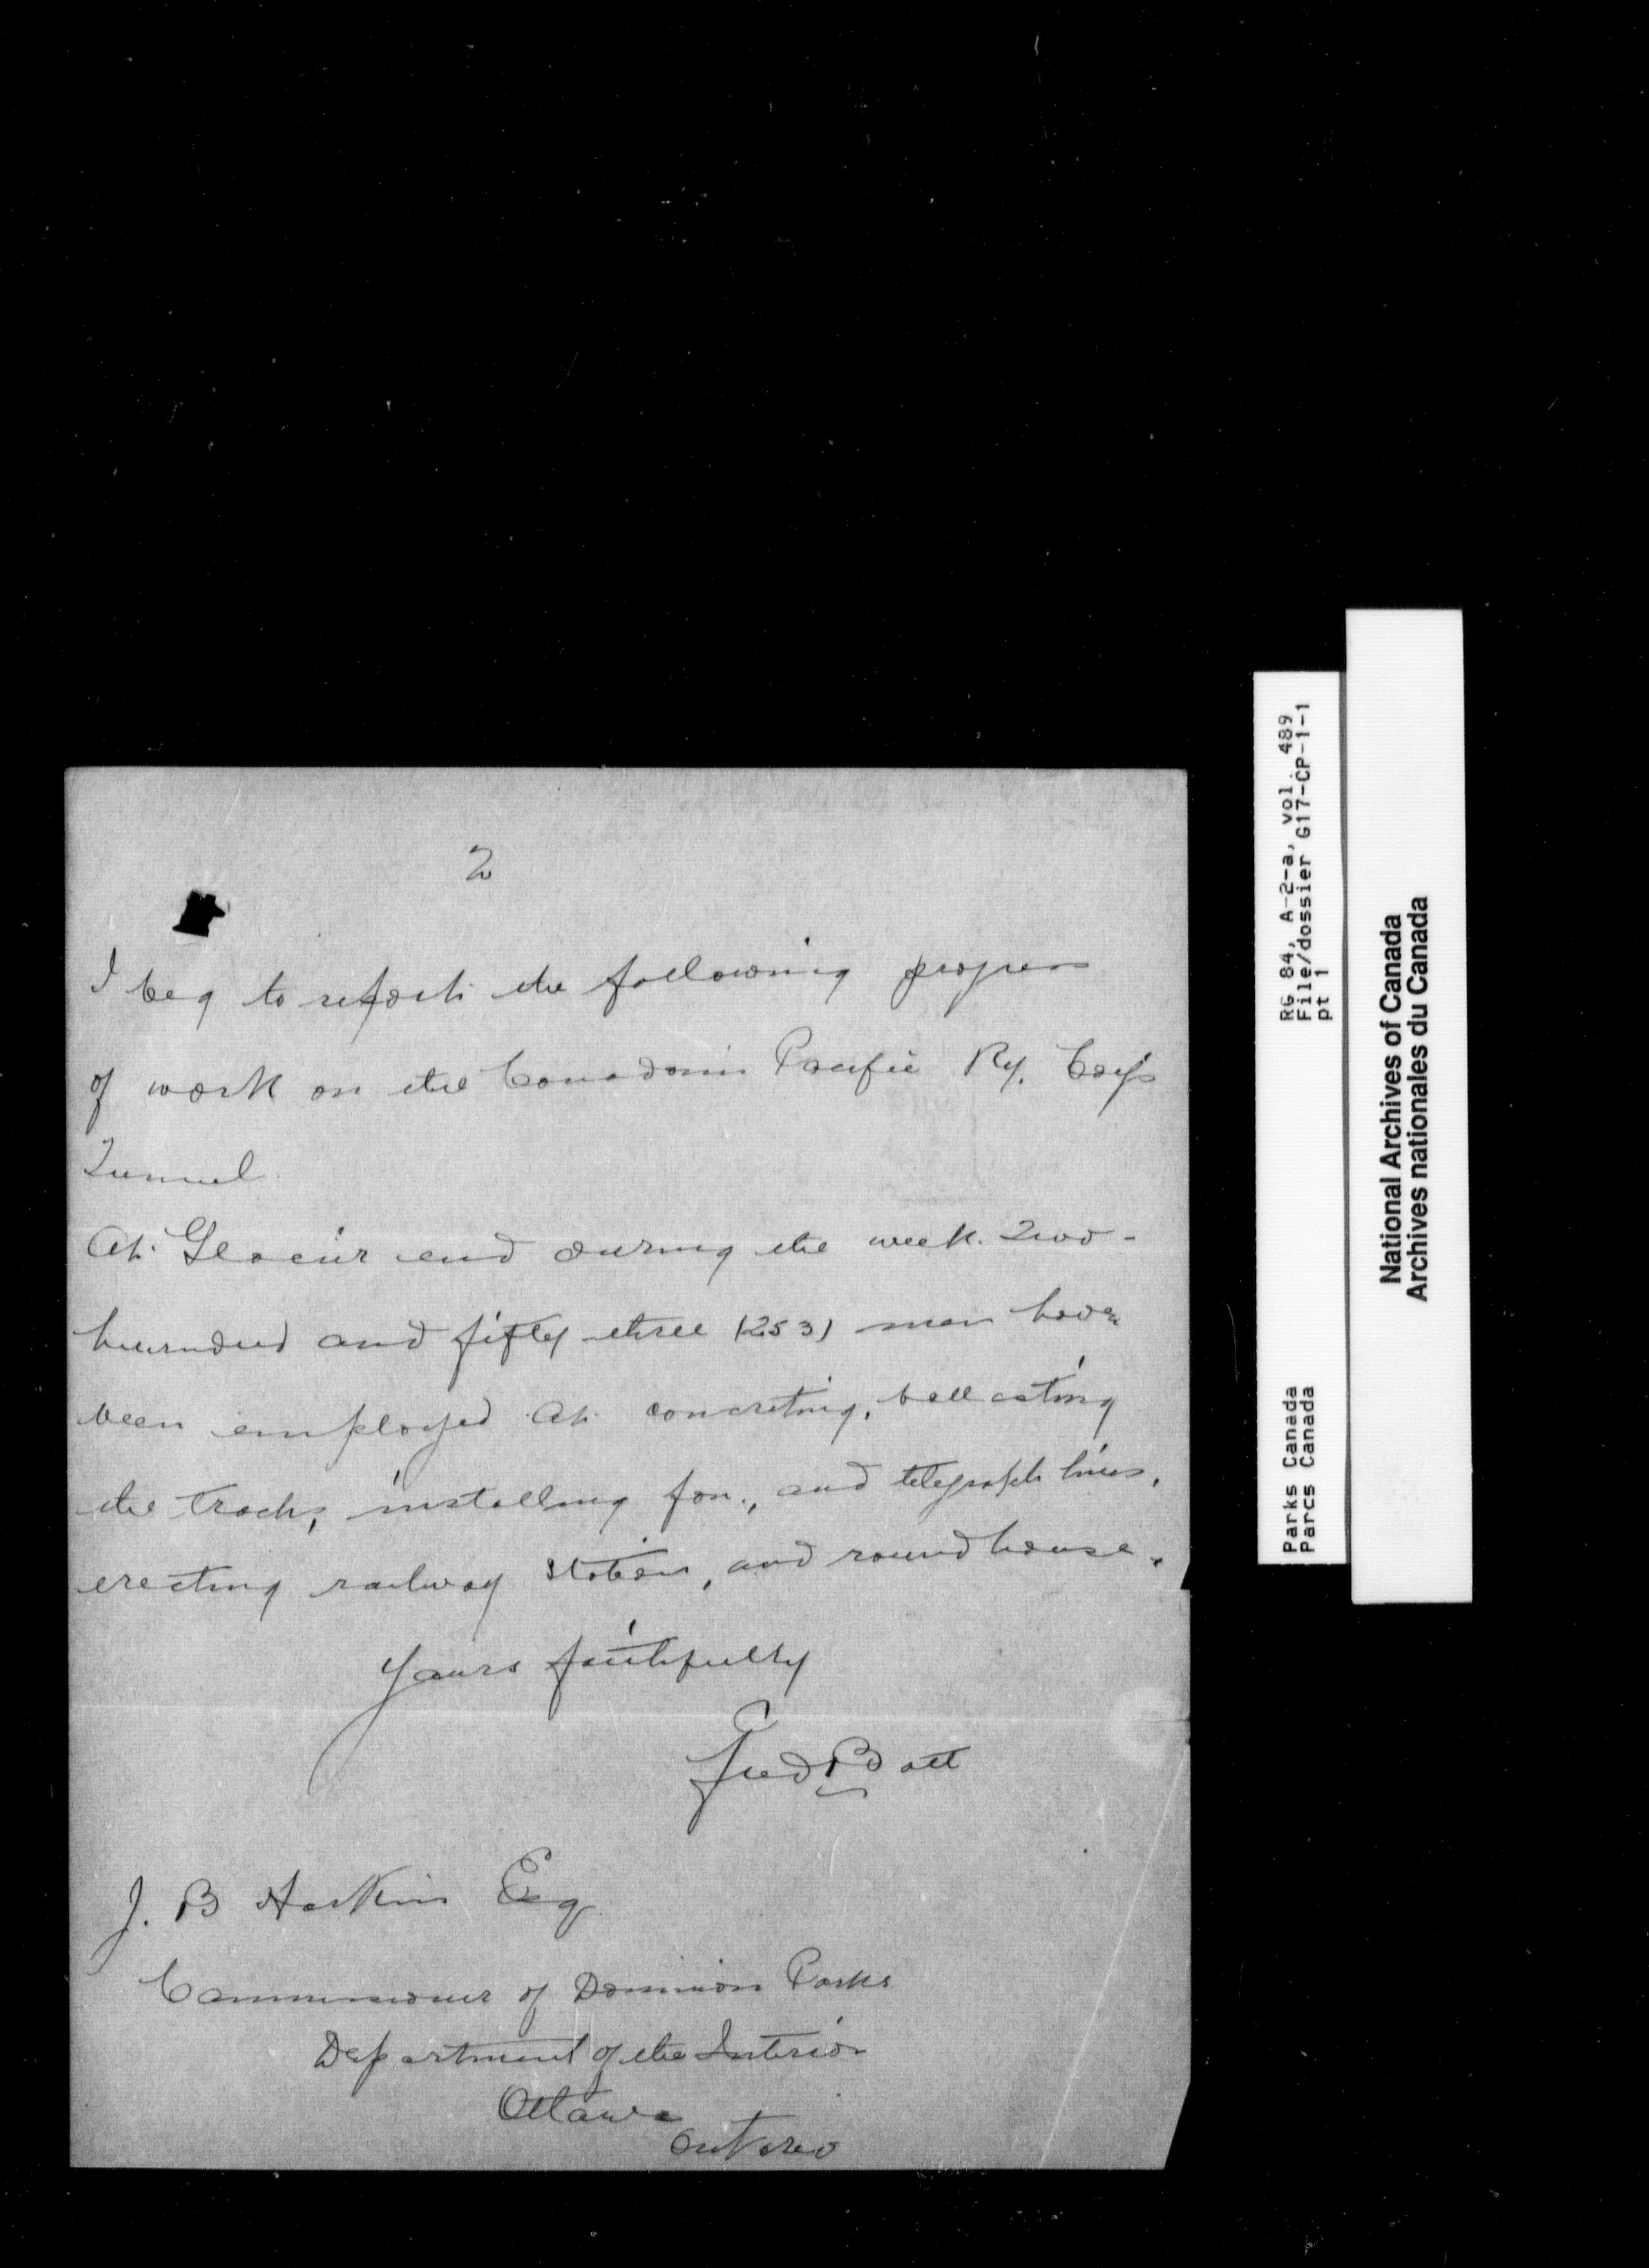 2
I beg to report the following progress
of work on the Canadian Pacific Ry. Coy's
Tunnel
At Glacier end during the week. Two-
hundred and fifty three (253) men have
been employed at concreting, ballasting
the track, installing fan, and telegraph lines,
erecting railway station, and roundhouse.
Yours faithfully
Fred Batt
J. B Harkin Esq
Commissioner of Dominion Parks
Department of the Interior
Ottawa
Ontario
RG 84, A-2-a, vol. 489
File/dossier G17-CP-1-1
pt 1
Parks Canada
Parcs Canada
National Archives of Canada
Archives nationales du Canada